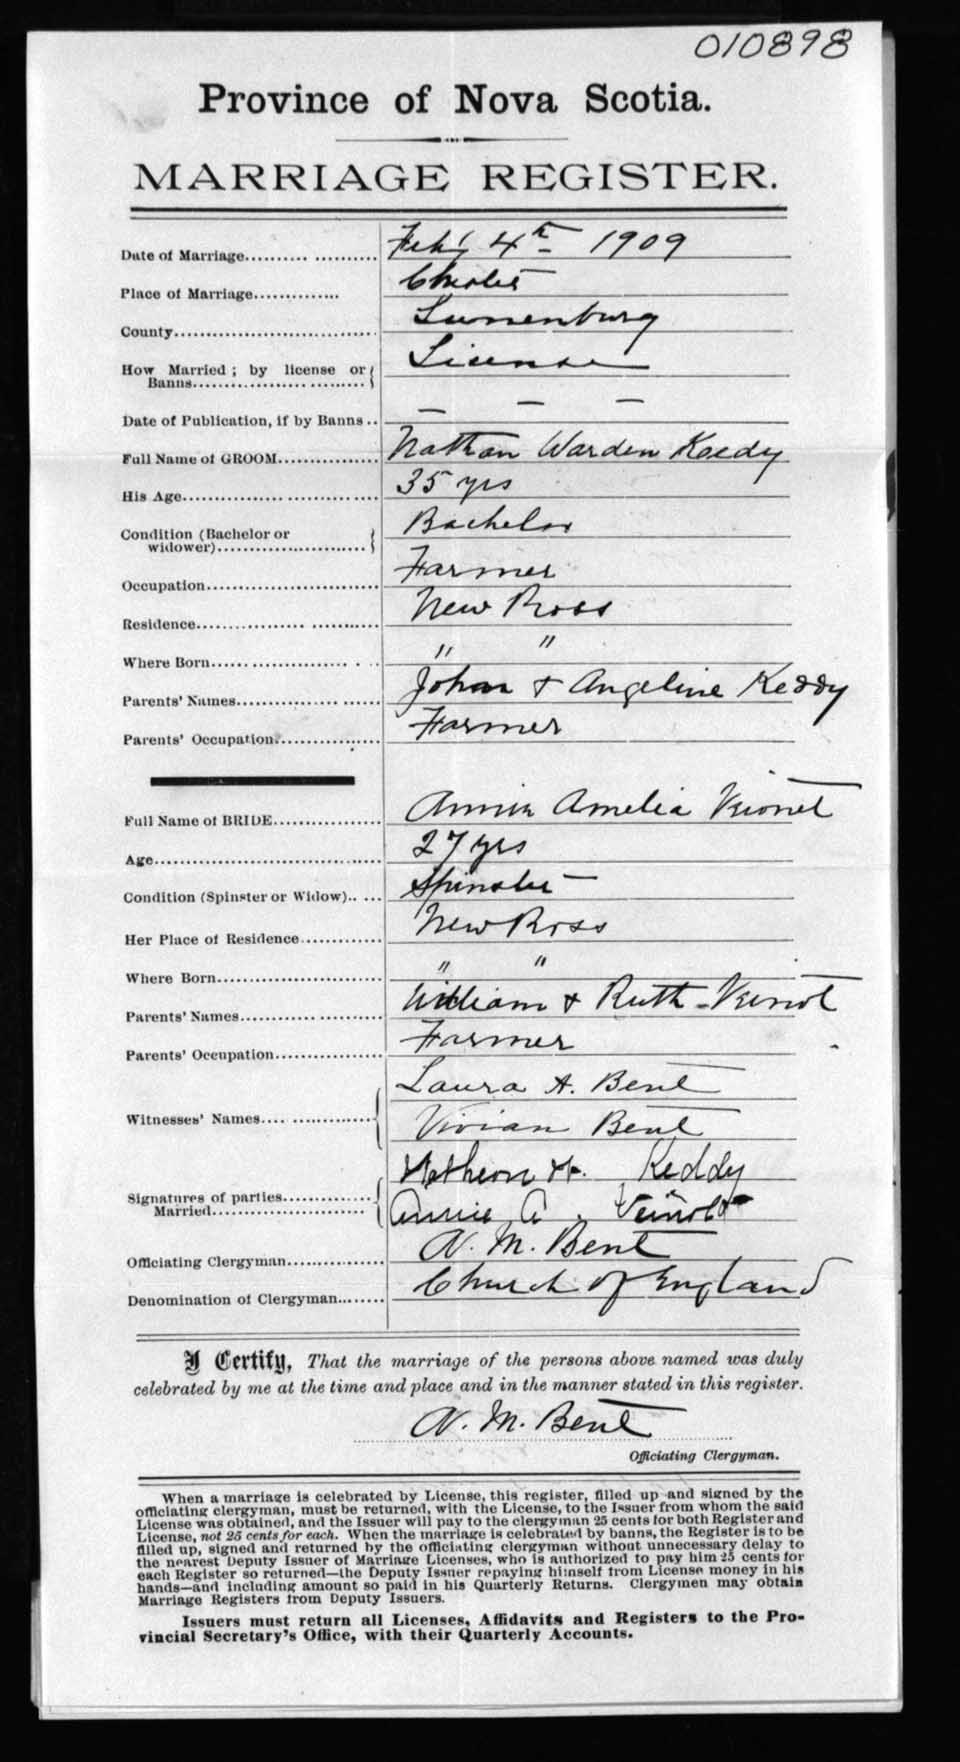 010898
Province of Nova Scotia.
MARRIAGE REGISTER.
Date of Marriage.......... .......... Feb'y 4th 1909
Place of Marriage.............. Chester
County............................. Lunenburg
How Married ; by license or Banns.................... ......... License
Date of Publication, if by Banns .. — — —
Full Name of GROOM................ Nathan Warden Keddy
His Age.................... ............ 35 yrs
Condition (Bachelor or widower).......................... Bachelor
Occupation........................... Farmer
Residence................ ........... New Ross
Where Born...... .............. . .. " "
Parents' Names............... ...... John & Angeline Keddy
Parents' Occupation................ Farmer
Full Name of BRIDE................. Annie Amelia Veinot
Age................................... 27 yrs
Condition (Spinster or Widow).. ... Spinster
Her Place of Residence............. New Ross
Where Born.......................... " "
Parents' Names.............. ....... William & Ruth Veinot
Parents' Occupation................. Farmer
Witnesses' Names.... .............. Laura A. Bent
Vivian Bent
Signatures of parties Married....................... Keddy
Annie A. Veinot
Officiating Clergyman............... N. M. Bent
Denomination of Clergyman........ Church of England
I Certify, That the marriage of the persons above named was duly
celebrated by me at the time and place and in the manner stated in this register.
N. M. Bent
Officiating Clergyman.
When a marriage is celebrated by License, this register, filled up and signed by the
officiating clergyman, must be returned, with the License, to the Issuer from whom the said
License was obtained, and the Issuer will pay to the clergyman 25 cents for both Register and
License, not 25 cents for each. When the marriage is celebrated by banns, the Register is to be
filled up, signed and returned by the officiating clergyman without unnecessary delay to
the nearest Deputy Issuer of Marriage Licenses, who is authorized to pay him 25 cents for
each Register so returned—the Deputy Issuer repaying himself from License money in his
hands—and including amount so paid in his Quarterly Returns. Clergymen may obtain
Marriage Registers from Deputy Issuers.
Issuers must return all Licenses, Affidavits and Registers to the Pro-
vincial Secretary's Office, with their Quarterly Accounts.